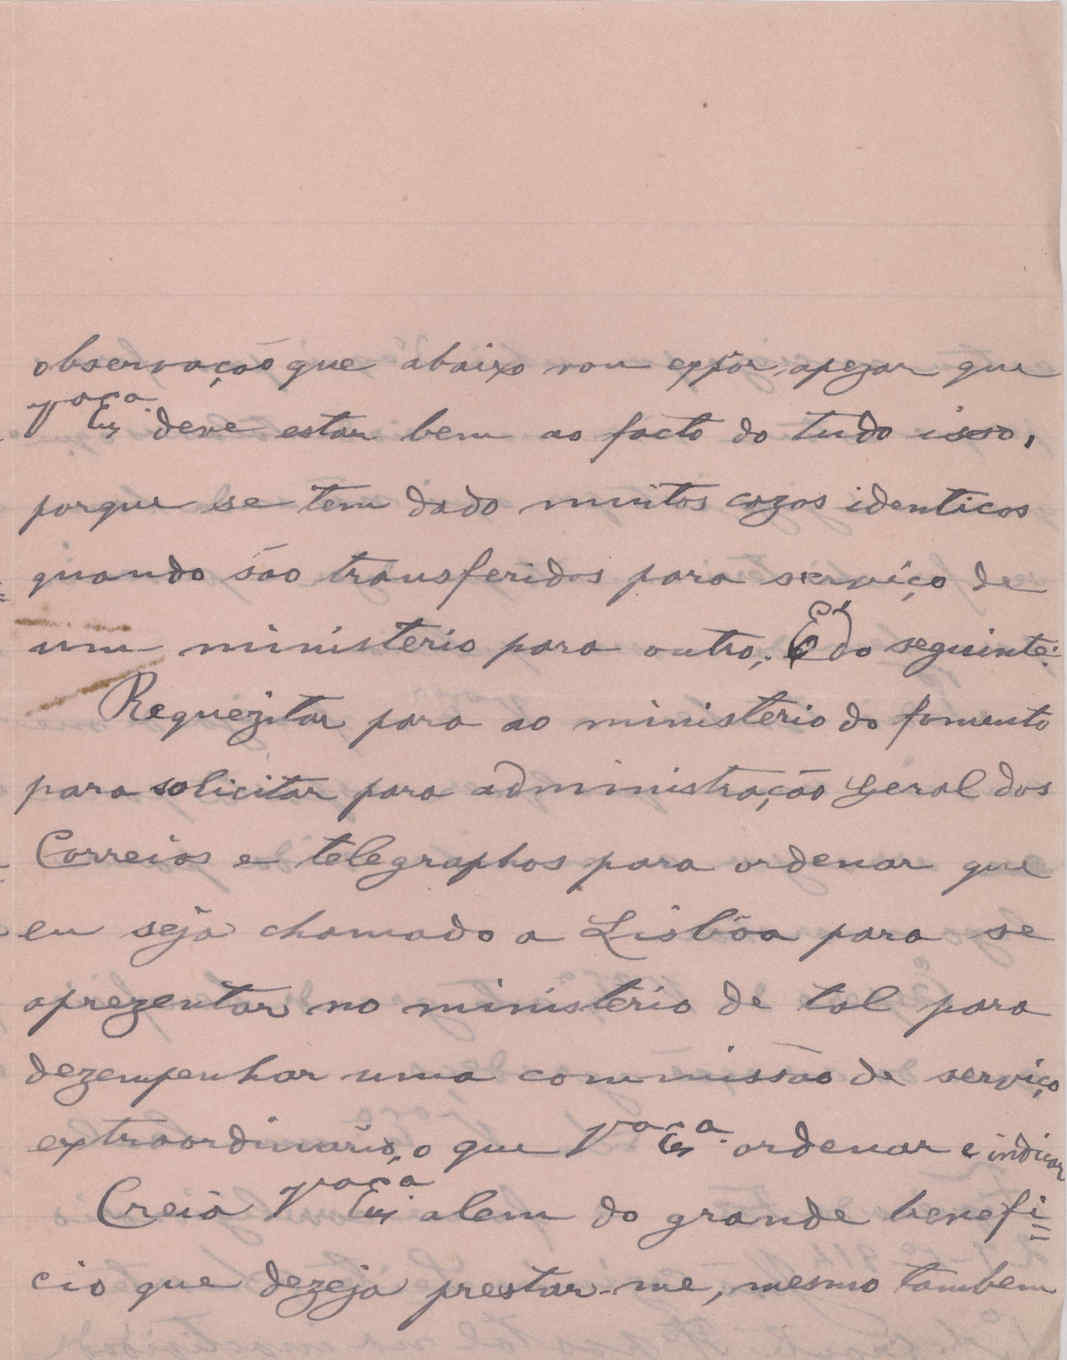 observação que abaixo vou expôr, apezar que
Vª Exª deve estar bem ao facto do tudo isso,
porque se tem dado muitos cazos identicos
quando são transferidos para serviço de
um ministerio para outro,. É do seguinte:
Requezitar para ao ministerio do fomento
para solicitar para administração Geral dos
Correios e telegraphos para ordenar que
eu seja chamado a Lisbôa para se
aprezentar no ministerio de tal para
dezempenhar uma commissão de serviço
extraordinario, o que Vª Exª ordenar e indicar
Creia Vª Exª alem do grande benefi=
cio que dezeja prestar-me, mesmo tambem